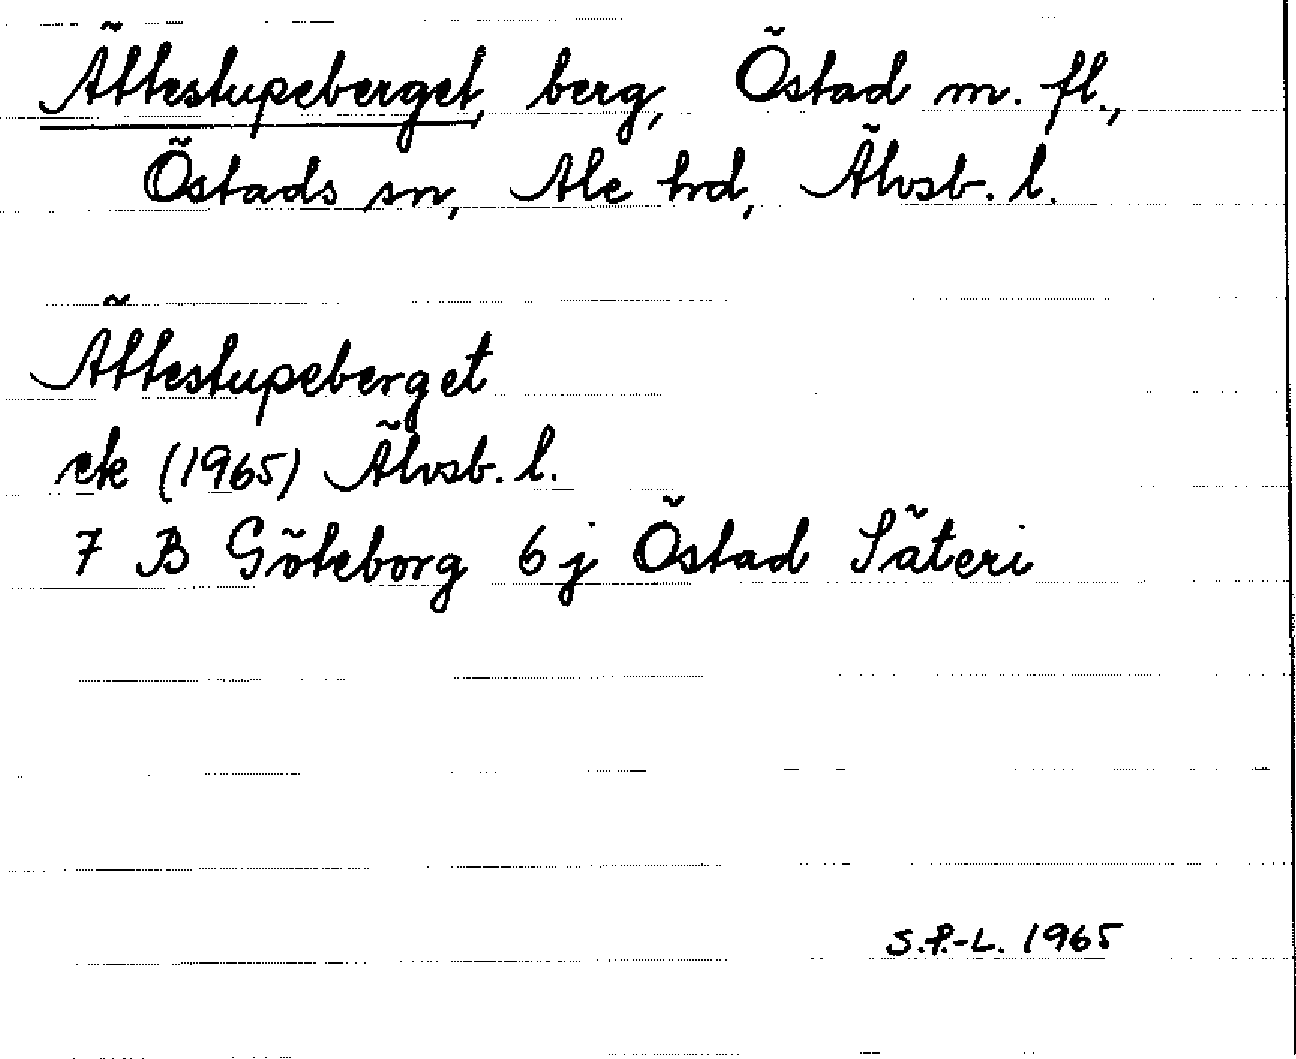 Ättestupeberget, berg, Östad m. fl.,
Östads sn, Ale hd, Älvsb. l.
Ättestupeberget
ek (1965) Älvsb. l.
7 B Göteborg 6 j Östad Säteri
S.F.-L. 1965